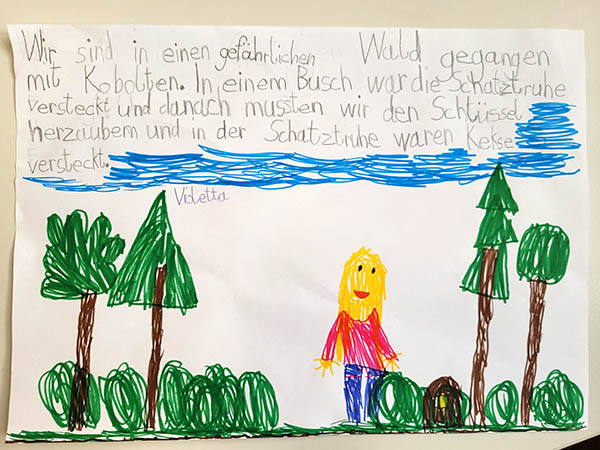 Wir sind in einen gefährlichen Wald gegangen
mit Kobolten. In einem Busch war die Schatztruhe
versteckt und danach mussten wir den Schlüssel
herzaubern und in der Schatztruhe waren Kekse
versteckt.
Violetta